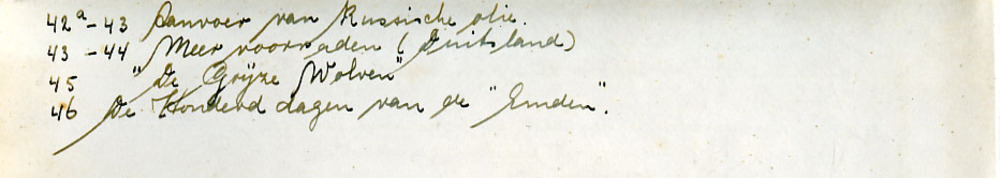 42a-43 Aanvoer van Russische olie.
43-44 Meer voorraden (Duitsland)
45 "De Grijze Wolven"
46 De Honderd dagen van de "Emden".